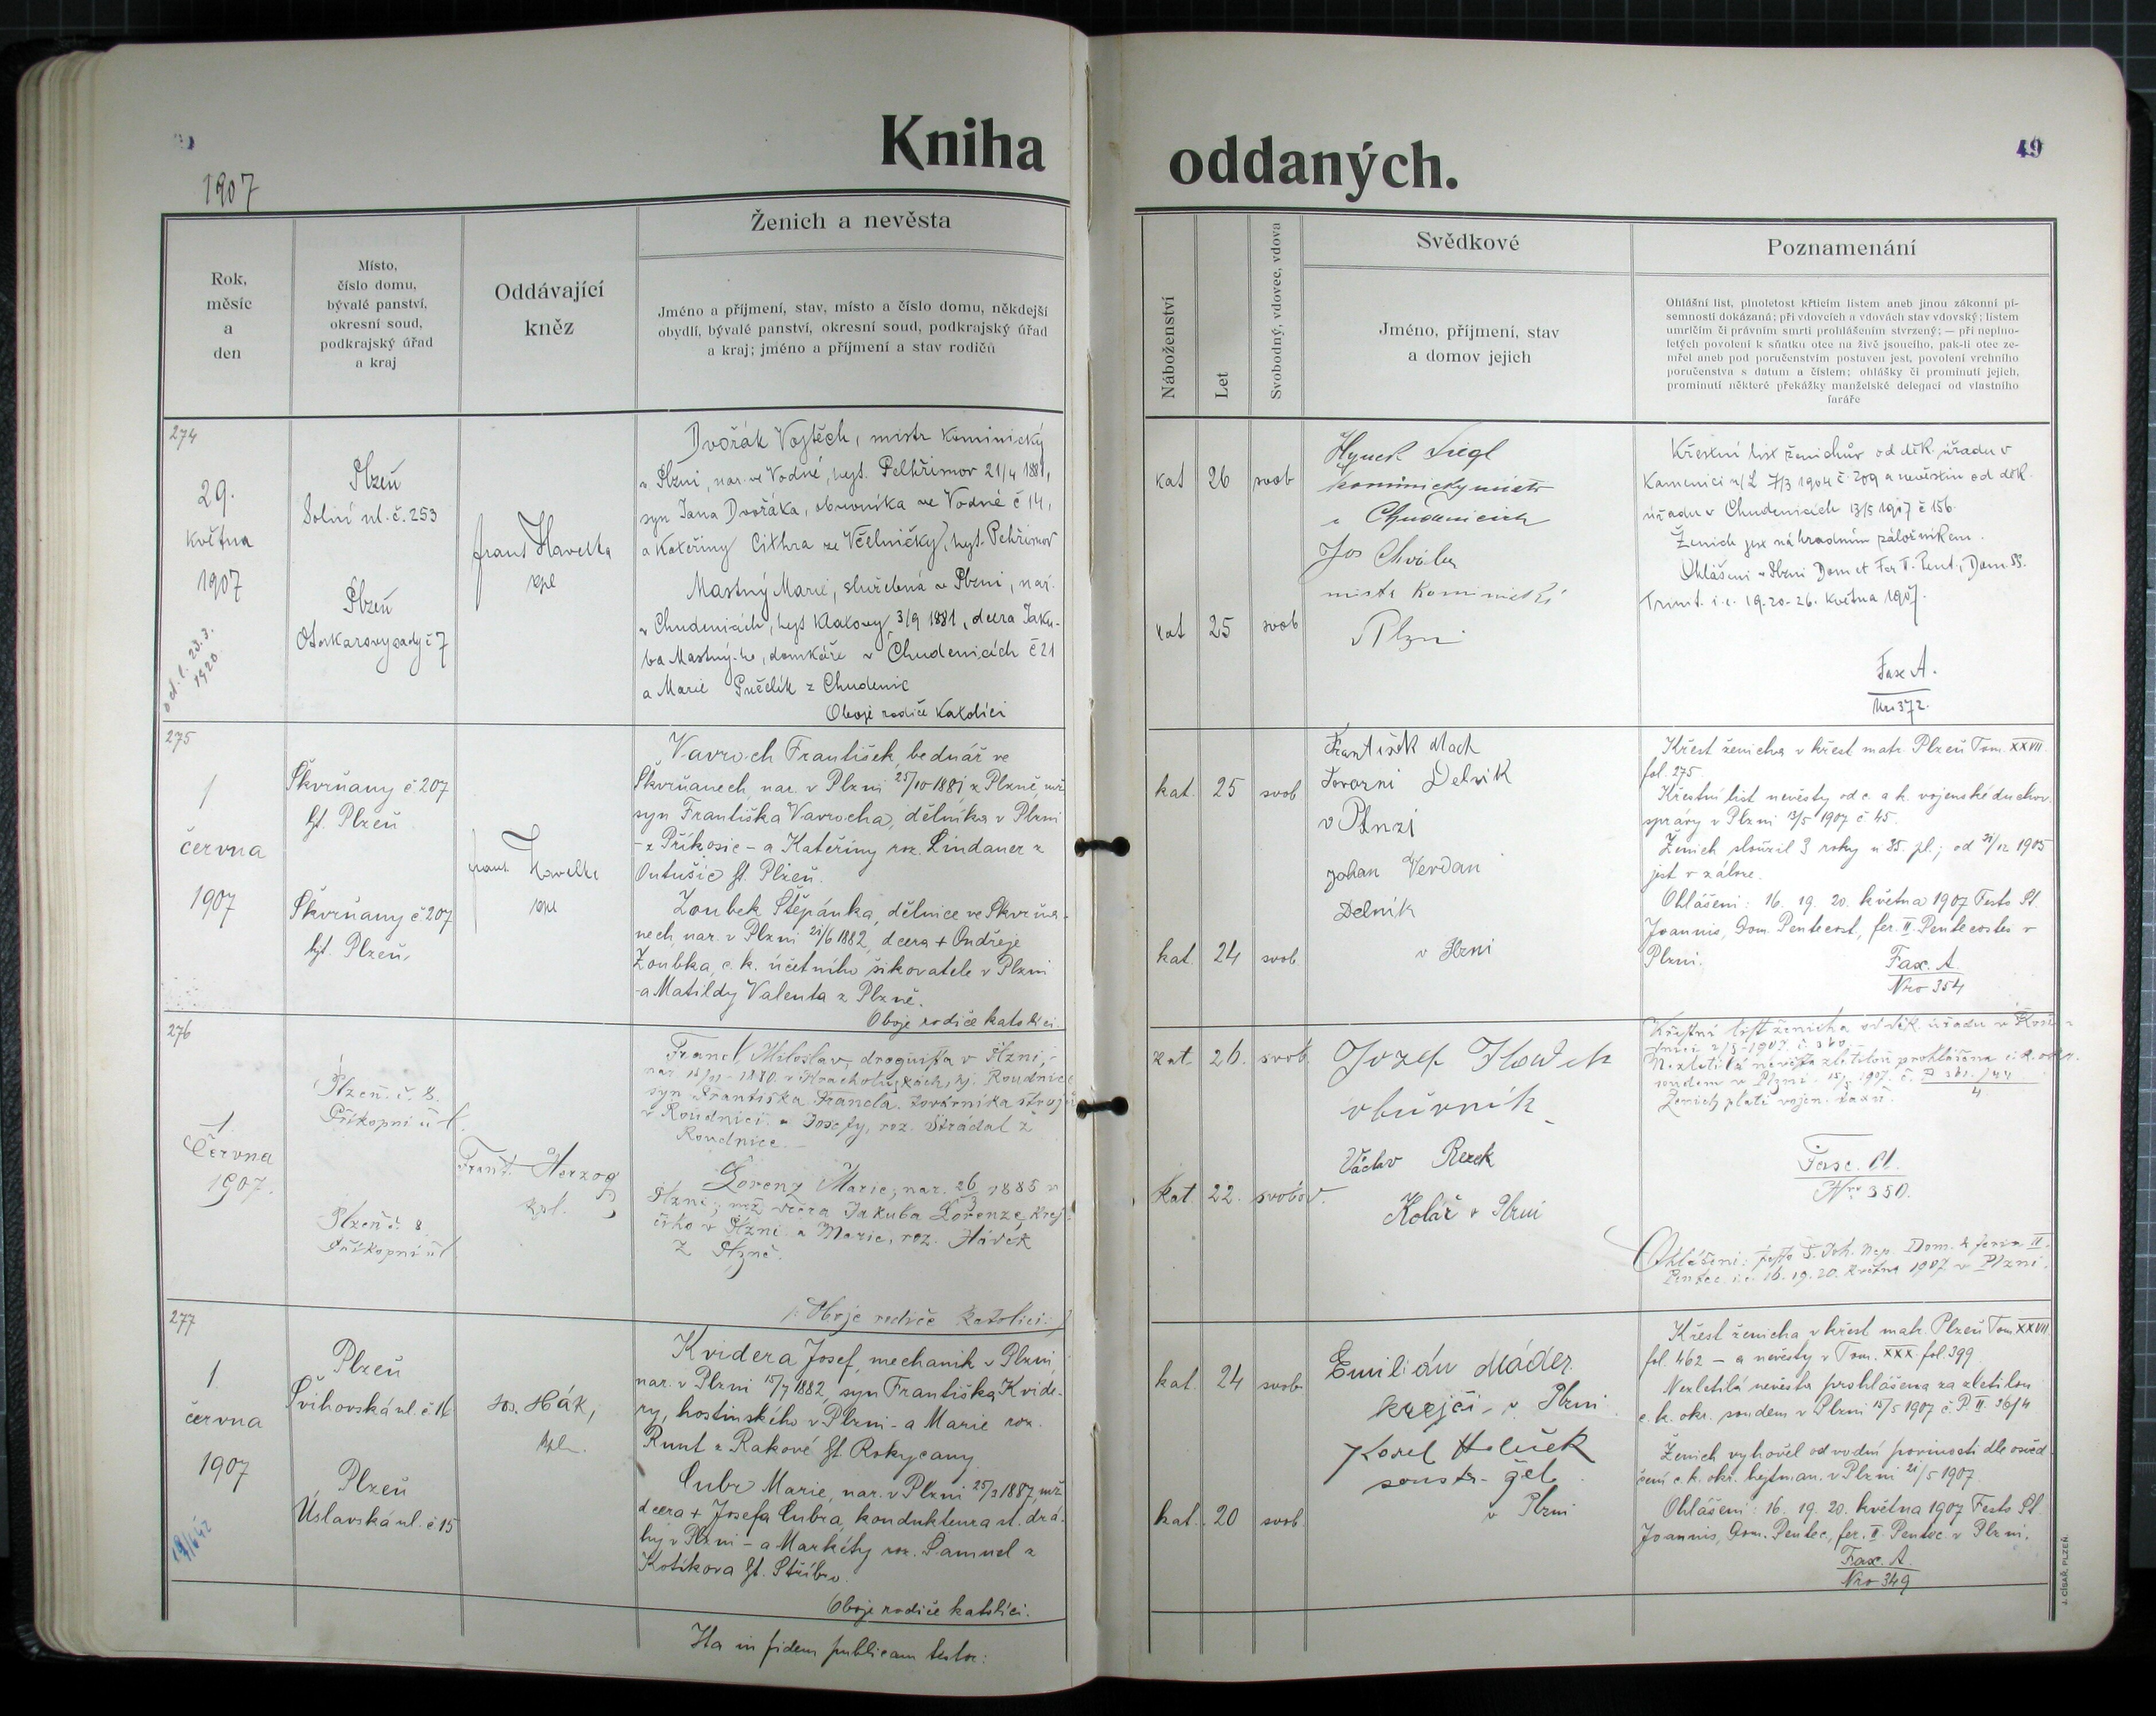 Kniha oddaných.
49
1907
Ženich a nevěsta
Rok,
měsíc
a
den
Místo,
číslo domu,
bývalé panství,
okresní soud,
podkrajský úřad
a kraj
Oddávající
kněz
Jméno a příjmení, stav, místo a číslo domu, někdejší
obydlí, bývalé panství, okresní soud, podkrajský úřad
a kraj; jméno a příjmení a stav rodičů
Náboženství
Let
Svobodný, vdovec, vdova
Svědkové
Jméno, příjmení, stav
a domov jejich
Poznamenání
Ohlášní list, plnoletost křticím listem aneb jinou zákonní pí-
semností dokázaná; při vdovcích a vdovách stav vdovský; listem
umrlčím či právním smrti prohlášením stvrzený; — při neplno-
letých povolení k sňatku otce na živě jsoucího, pak-li otec ze-
mřel aneb pod poručenstvím postaven jest, povolení vrchního
poručenstva s datum a číslem; ohlášky či prominutí jejich,
prominutí některé překážky manželské delegací od vlastního
faráře
274
29.
května
1907
Plzeň
Solní ul. č. 253
Plzeň
Otakarovy sady č 7
Frant Havelka
kpl
Dvořák Vojtěch, mistr kominický
v Plzni, nar. ve Vodné, hejt. Pelhřimov 21/4 1881,
syn Jana Dvořáka, obuvníka ve Vodné č 14,
a Kateřiny Cithra ze Včelničky, hejt. Pelhřimov
Mastný Marie, služebná v Plzni, nar.
v Chudenicích, hejt Klatovy 3/9 1881, dcera Jaku-
ba Mastného, domkáře v Chudenicích č 21
a Marie z Chudenic
Oboje rodiče katolíci
kat 26 svob
kat 25 svob
Hynek
kominický mistr
v Chudenicích
Jos
mistr kominický
v Plzni
Křestní list ženichův od děk. úřadu v
Kamenici n/L 7/3 1904 č. 209 a nevěstin od děk.
úřadu v Chudenicích 13/5 1907 č 156.
Ženich jest náhradním záložníkem.
Ohlášeni v Plzni Dom et Fer II. Pent., Dom. SS.
Trinit. i. e. 19. 20. 26. května 1907.
Fasc A.
Nro 372.
275
1
června
1907
Škvrňany č. 207
hejt. Plzeň
Škvrňany č. 207
hejt. Plzeň,
Frant. Havelka
kpl
Vavroch František, bednář ve
Škvrňanech, nar. v Plzni 25/10 1881 z Plzně, mž.
syn Františka Vavrocha, dělníka v Plzni
- z Příkosic - a Kateřiny roz. Lindauer z
hejt. Plzeň.
Zoubek Štěpánka, dělnice ve Škvrňa-
nech, nar. v Plzni 21/6 1882, dcera + Ondřeje
Zoubka, c. k. účetního šikovatele v Plzni
- a Matildy Valenta z Plzně.
Oboje rodiče katolíci.
kat. 25 svob
kat. 24 svob.
František Mach
Tovarni Delnik
v Plnzi
Johan Verdan
Delník
v Plzni
Křest ženicha v křest matr. Plzeň Tom. XXVII.
fol. 275.
Křestní list nevěsty od c. a k. vojenské duchov.
správy v Plzni 13/5 1907 č 45.
Ženich sloužil 3 roky u 35. pl.; od 31/12 1905
jest v záloze.
Ohlášeni: 16. 19. 20. května 1907 Festo St.
Joannis, Dom. Pentecost, fer. II. Pentecostes v
Plzni.
Fasc. A.
Nro 354
276
1
června
1907.
Plzeň. č. 8.
Příkopní ul.
Plzeň č. 8
Příkopní ul.
Frant. Herzog
kpl.
Francl Miloslav, droguista v Plzni,
hej. Roudnice
syn Františka Francla, továrníka strojů
v Roudnici a Josefy, roz. Stradal z
Roudnice.
Lorenz Marie, nar. 26/3 1885 v
Plzni; mž. dcera Jakuba Lorenze, krej-
čího v Plzni a Marie, roz. Hádek
z Plzně.
/: Oboje rodiče katolíci :/
kat. 26. svob.
kat. 22. svobod.
Jozef
obuvník
Václav Rezek
Kolář v Plzni
Křestní list ženicha od děk. úřadu v Roud-
Nezletilá nevěsta zletilou prohlášena c. k. okr.
soudem v Plzni 15/5 1907
Ženich platí vojen. taxu.
Fasc. A.
Nro 350.
Ohlášeni: festo S. Joh. Nep. Dom. & feria II.
Pentec. i. e. 16. 19. 20. května 1907 v Plzni.
277
1.
června
1907
Plzeň
Švihovská ul. č. 16
Plzeň
Úslavská ul. č. 15
Jos. Hák,
kpl.
Kvidera Josef, mechanik v Plzni,
nar. v Plzni 15/7 1882, syn Františka Kvide-
ry, hostinského v Plzni - a Marie roz.
Runt z Rakové hejt. Rokycany
Cubr Marie, nar. v Plzni 25/3 1887, mž.
dcera + Josefa Cubra, kondukteura st. drá-
hy v Plzni - a Markéty roz. Samuel z
Kotíkova hejt. Stříbro.
Oboje rodiče katolíci.
kat. 24 svob
kat. 20 svob.
Emilián Mádr
krejčí v Plzni
Karel Holeček
v Plzni
Křest ženicha v křest matr. Plzeň Tom XXVII
fol. 462 — a nevěsty v Tom. XXX fol. 399.
Nezletilá nevěsta prohlášena za zletilou
c. k. okr. soudem v Plzni 15/5 1907 č. P. II. 36/4
Ženich vyhověl odvodní povinosti dle osvěd-
čení c. k. okr. hejtman. v Plzni 21/5 1907.
Ohlášeni: 16. 19. 20. května 1907 Festo St.
Joannis, Dom. Pentec, fer. II. Pentec. v Plzni.
Fasc. A.
Nro 349
Ita in fidem publicam testor:
J. CÍSAŘ, PLZEŇ